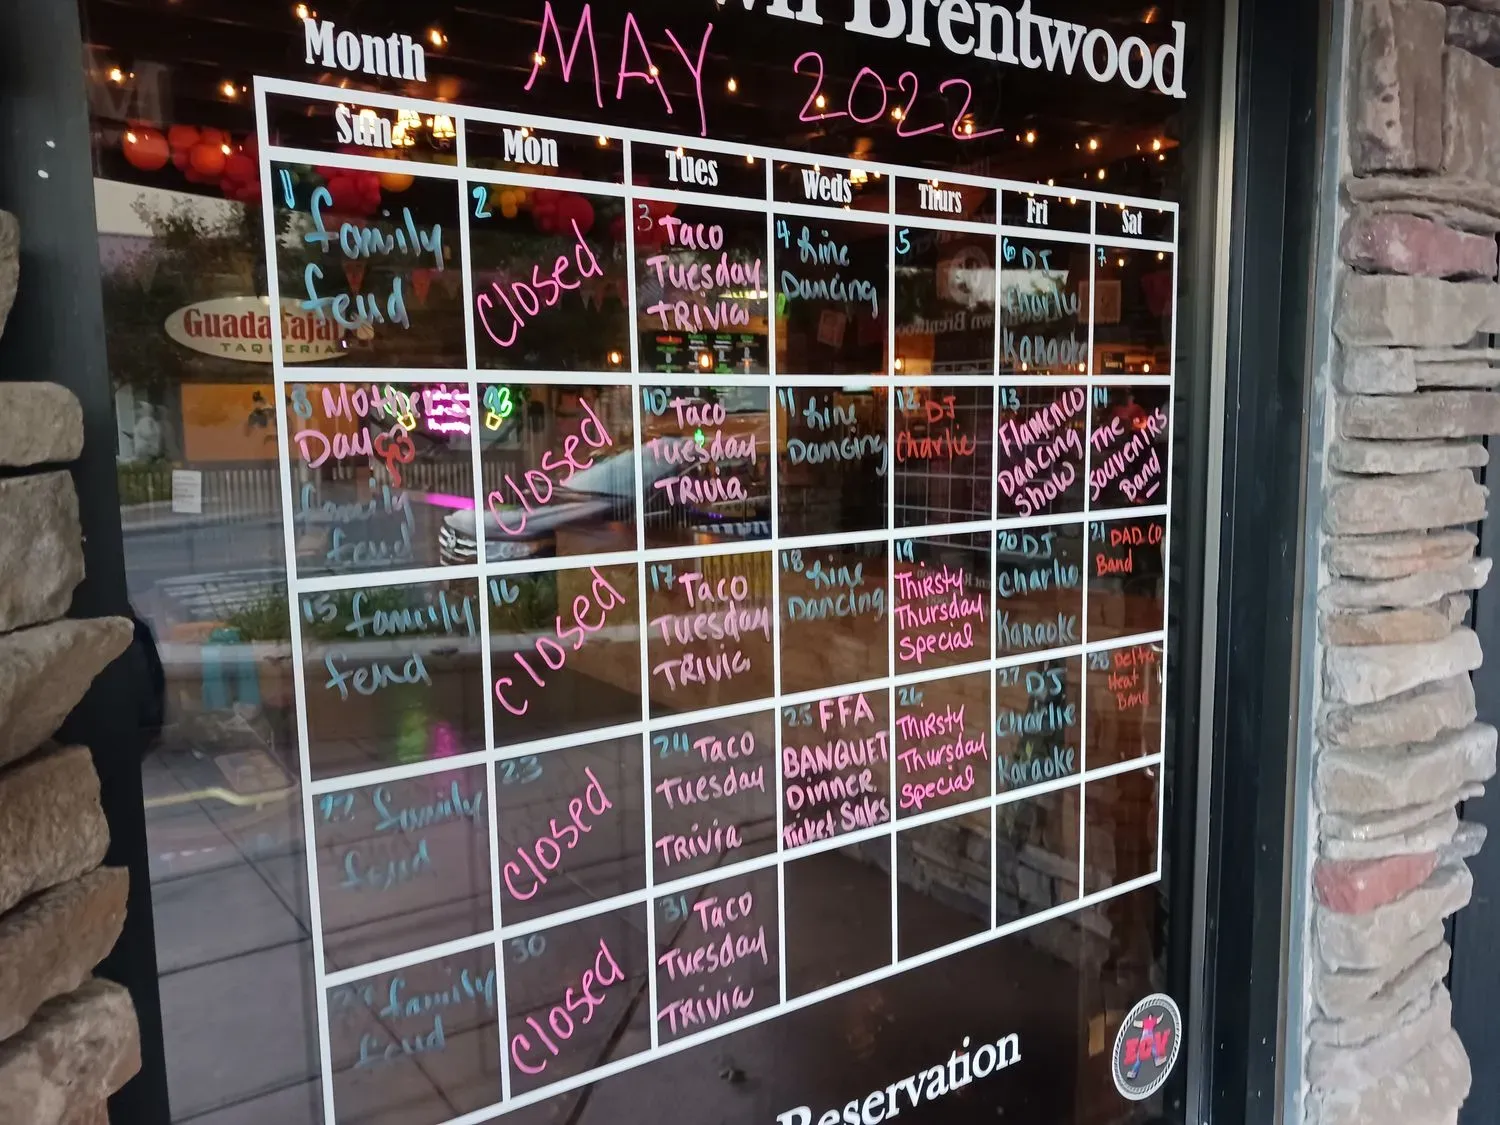 wn Brentwood
Month
MAY 2022
Sun
Mon
Tues
Weds
Thurs
Fri
Sat
1 family
feud
2
Closed
3 Taco
Tuesday
TRIVIA
4 Line
Dancing
5
6 DJ
Charlie
Karaoke
7
8 Mother's
Day
family
feud
Closed
10 Taco
Tuesday
TRIVIA
11 Line
Dancing
12 DJ
Charlie
13
Flamenco
Dancing
Show
14
The
Souvenirs
Band
15 family
feud
16
Closed
17 Taco
Tuesday
TRIVIA
18 Line
Dancing
19
Thirsty
Thursday
Special
20 DJ
Charlie
Karaoke
21 DAD CO
Band
22 family
feud
23
Closed
24 Taco
Tuesday
Trivia
25 FFA
BANQUET
Dinner
Ticket Sales
26
Thirsty
Thursday
Special
27 DJ
Charlie
Karaoke
28 Delta
Heat
Band
family
feud
30
Closed
31 Taco
Tuesday
TRIVIA
Reservation
ECV
Guadalajara
TAQUERIA